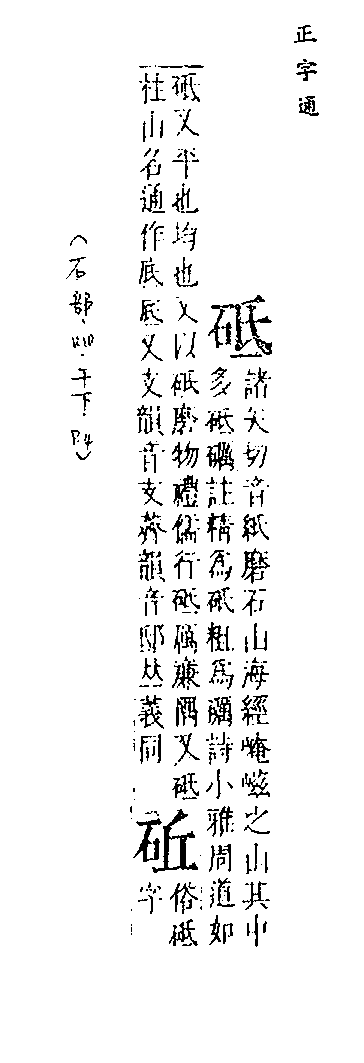 正字通
砥
諸矢切音紙磨石山海經崦嵫之山其中
多砥礪註精爲砥粗爲礪詩小雅周道如
砥又平也均也又以砥磨物禮儒行砥厲廉隅又砥
柱山名通作底厎又支韻音支薺韻音邸𠀤義同
俗砥
字
（石部、午下、P.4）